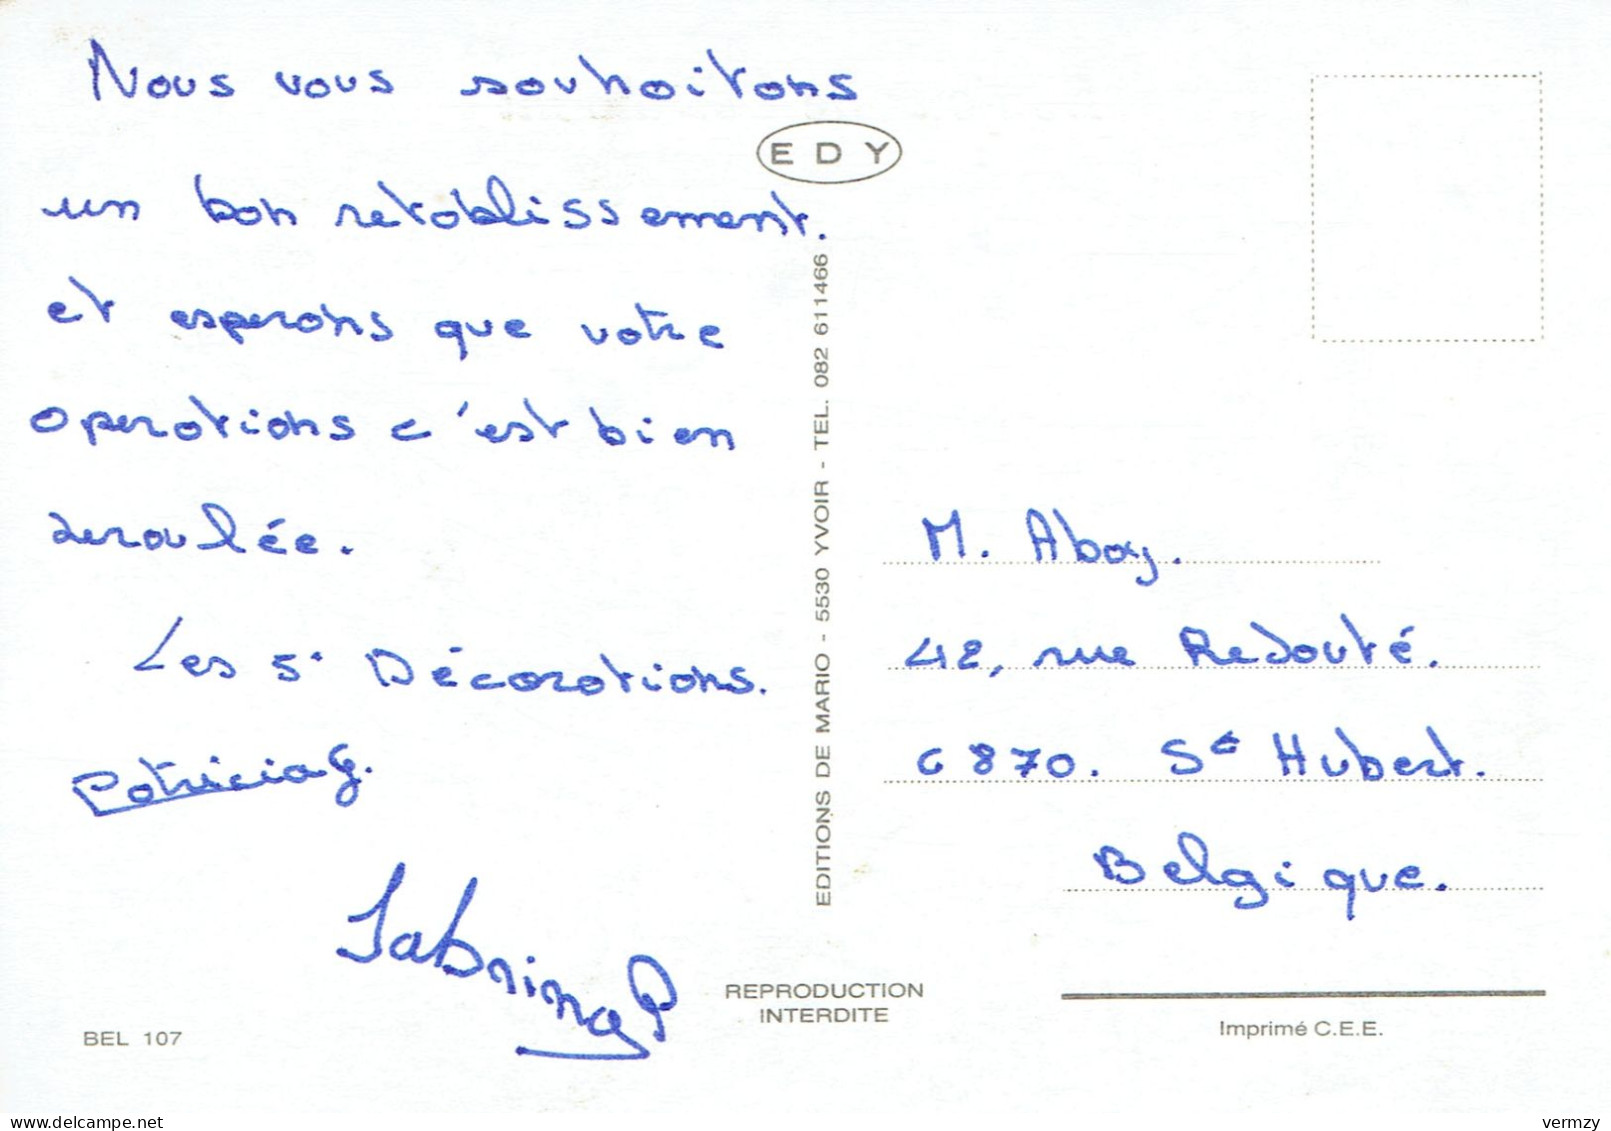 Nous vous souhaitons
un bon retablissement.
et esperons que votre
operations c'est bien
deroulée.
Les 5e Décorations.
Patricia G.
Sabrina P
BEL 107
EDY
EDITIONS DE MARIO - 5530 YVOIR - TEL. 082 611466
REPRODUCTION
INTERDITE
M. Abay.
42, rue Redouté.
6870. St Hubert.
Belgique.
Imprimé C.E.E.
vermzy